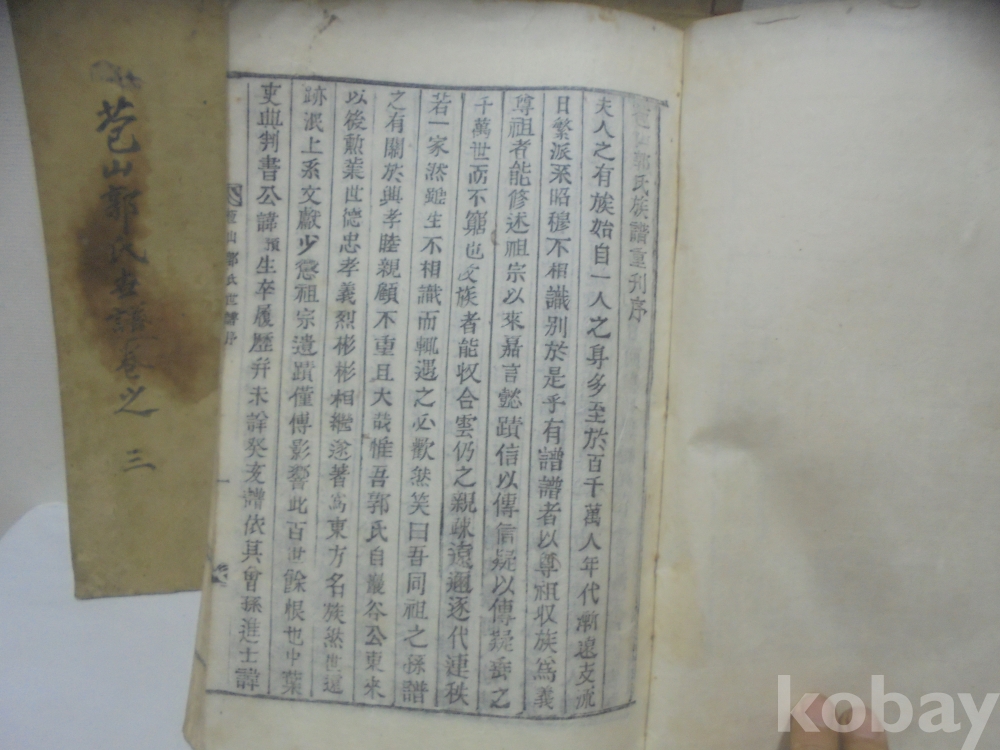 苞山郭氏世譜卷之 三
郭氏族譜重刊序
夫人之有族始自一人之身多至於百千萬人年代漸遠支流
日繁派系昭穆不相識別於是乎有譜譜者以尊祖収族爲義
尊祖者能修述祖宗以來嘉言懿蹟信以傳信疑以傳疑垂之
千萬世而不窮也収族者能収合雲仍之親疎遠邇逐代連秩
若一家然雖生不相識而輒遇之必歡然笑曰吾同祖之孫譜
之有關於興孝睦親顧不重且大哉惟吾郭氏自巖谷公東來
以後勲業世德忠孝義烈彬彬相繼遂著爲東方名族然世遠
跡泯上系文獻少懲祖宗遺蹟僅傳影響此百世餘根也中葉
吏典判書公諱預生卒履歷幷未詮癸亥譜依其曾孫進士諱
山郭氏世譜序
一
kobay